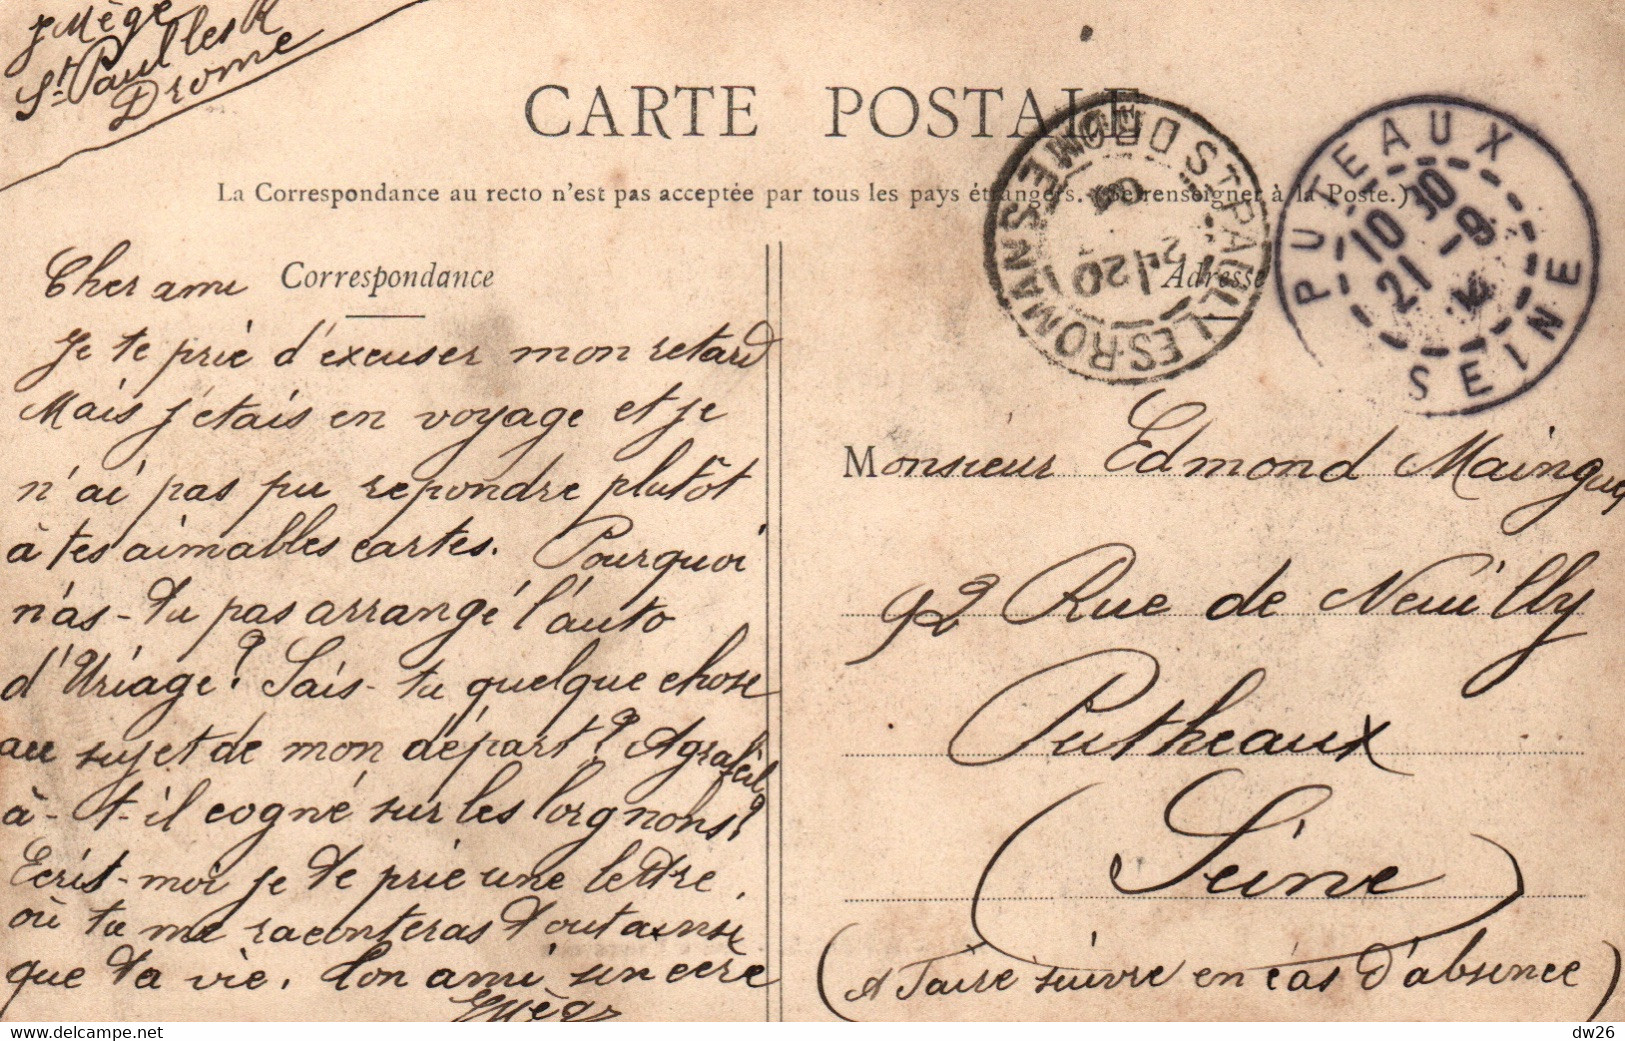 J Mège
St Paul les R
Drome
CARTE POSTALE
La Correspondance au recto n'est pas acceptée par tous les pays étrangers. (Se renseigner à la Poste.)
Correspondance
Cher ami
Je te prie d'excuser mon retard
Mais j'étais en voyage et je
n'ai pas pu repondre plutôt
à tes aimables cartes. Pourquoi
n'as-tu pas arrangé l'auto
d'Uriage? Sais-tu quelque chose
au sujet de mon départ? Agrafeil
à-t-il cogné sur les lorgnons?
Ecris-moi je te prie une lettre
où tu me raconteras tout ainsi
que ta vie. Ton ami sincère
JMège
ST PAUL-LES-ROMANS DROME
20
PUTEAUX SEINE
10 30
21 -9
Adresse
Monsieur Edmond Mainguy
92 Rue de Neuilly
Putheaux
(Seine)
(A faire suivre en cas d'absence)
dw26